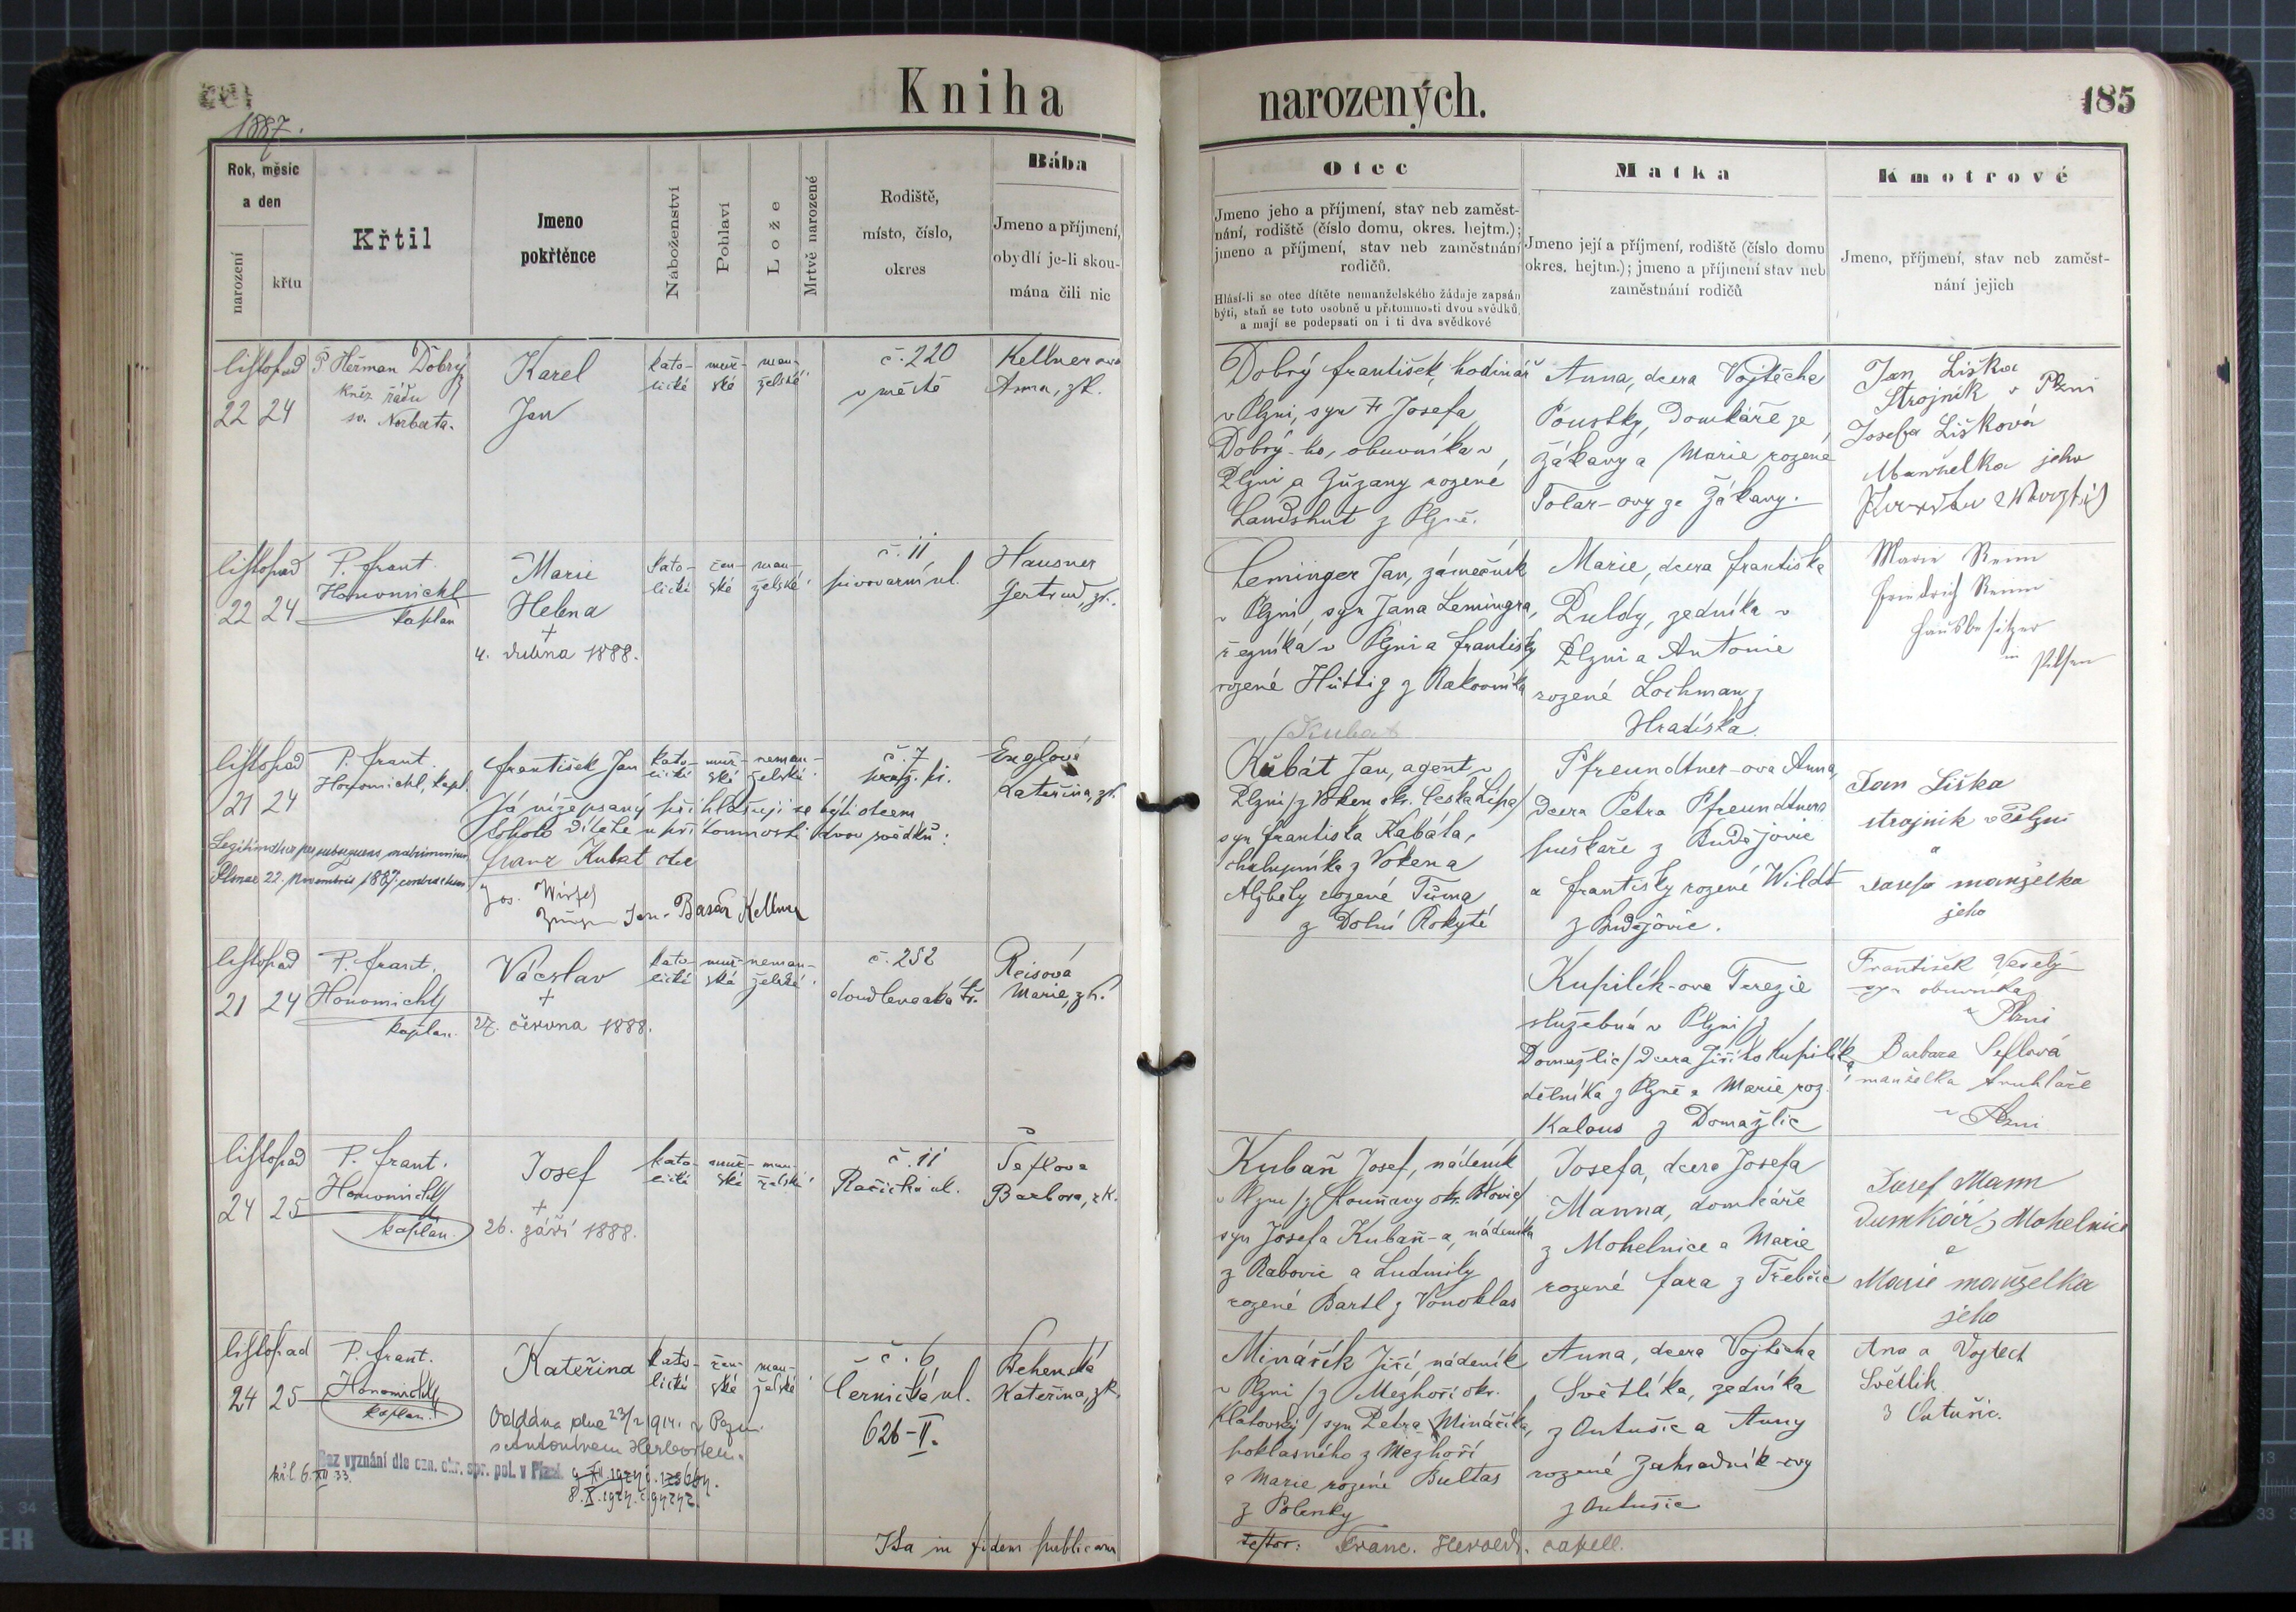 Kniha narozených.
185
1887.
Rok, měsíc a den
narození
křtu
Křtil
Jmeno pokřtěnce
Náboženství
Pohlaví
Lože
Mrtvě narozené
Rodiště, místo, číslo, okres
Bába
Jmeno a příjmení, obydlí je-li skoumána čili nic
Otec
Jmeno jeho a příjmení, stav neb zaměst-
nání, rodiště (číslo domu, okres. hejtm.);
jmeno a příjmení, stav neb zaměstnání
rodičů.
Hlásí-li se otec dítěte nemanželského žádaje zapsán
býti, staň se toto osobně u přítomnosti dvou svědků,
a mají se podepsati on i ti dva svědkové
Matka
Jmeno její a příjmení, rodiště (číslo domu
okres. hejtm.); jmeno a příjmení stav neb
zaměstnání rodičů
Kmotrové
Jmeno, příjmení, stav neb zaměst-
nání jejich
listopad
22 24
P Heřman Dobrý
kněz řádu
sv. Norberta.
Karel
Jan
kato-
lické
muž-
ské
man-
želské
č. 220
v městě
Kellnerova
Anna, zk.
Dobrý František, hodinář
v Plzni, syn † Josefa
Dobrý-ho, obuvníka v
Plzni a Zuzany rozené
Landshut z Plzně.
Anna, dcera Vojtěcha
Poustky, domkáře ze
Žákavy a Marie rozené
Tolar-ovy ze Žákavy.
Jan Liška
Strojník v Plzni
Josefa Lišková
Manželka jeho
listopad
22 24
P. Frant.
Honomichl
kaplan
Marie
Helena
†
4. dubna 1888.
kato-
lické
žen-
ské
man-
želské
č. 11
pivovarní ul.
Hausner
Gertrud, zk.
Leminger Jan, zámečník
v Plzni, syn Jana Lemingra,
řezníka v Plzni a Františky
rozené Hüttig z Rakovníka
Marie, dcera Františka
Puldy, zedníka v
Plzni a Antonie
rozené Lochman z
Hradiska.
Friedrich
Hausbesitzer
in Pilsen
listopad
21 24
P. Frant.
Honomichl, kapl.
František Jan
kato-
lické
muž-
ské
neman-
želské
č. 7
Englová
Kateřina, zk.
Já níže psaný přihlašuji se býti otcem
tohoto dítěte u přítomnosti dvou svědků:
Franz Kubat otec
Jos.
Jan Basář Kellner
Legitimatus per subsequens matrimonium
Pilsnae 22. Novembris 1887. contractum
Kubat
Kubát Jan, agent v
Plzni /z Voken okr. Česká Lípa/
syn Františka Kubáta,
chalupníka z Vokena
Alžběty rozené Tůma
z Dolní Rokyté
Pfreundtner-ova Anna,
dcera Petra Pfreundtnera
puškaře z Budějovic
a Františky rozené Wildt
z Budějovic.
Jan Liška
strojnik v Plzni
a
Josefa manželka
jeho
listopad
21 24
P. Frant.
Honomichl
kaplan.
Václav
†
27. června 1888.
kato-
lické
muž-
ské
neman-
želské
č. 252
doudlevecká tř.
Reisová
Marie, zk.
Kupilík-ova Terezie
služebná v Plzni /z
Domažlic/ dcera Jiřího Kupilíka
dělníka z Plzně a Marie roz.
Kalous z Domažlic
František Veselý
syn obuvníka
v Plzni
a
Barbara Šeflová
manželka truhláře
v Plzni
listopad
24 25
P. Frant.
Honomichl
kaplan.
Josef
†
26. září 1888.
kato-
lické
muž-
ské
man-
želské
č. 11
Račická ul.
Šeflova
Barbora, zk.
Kubaň Josef, nádeník
syn Josefa Kubaň-a, nádeníka
z Rabovic a Ludmily
rozené Bartl z Vonoklas
Josefa, dcera Josefa
Manna, domkáře
z Mohelnice a Marie
rozené Fara z Třebčic
Josef Mann
Dumkář z Mohelnice
a
Marie manželka
jeho
listopad
24 25
P. Frant.
Honomichl
kaplan.
Kateřina
kato-
lické
žen-
ské
man-
želské
č. 6
Černická ul.
626-II.
Behenská
Kateřina, zk.
Oddána dne 23/2 1914. v Plzni
s Antonínem Herbortem.
Bez vyznání dle ozn. okr. spr. pol. v Plzni
Minářík Jiří nádeník
v Plzni /z Mezhoří okr.
Klatovský/ syn Petra Mináříka,
poklasného z Mezhoří
a Marie rozené Bultas
z Polenky
Anna, dcera Vojtěcha
Světlíka, zedníka
z Outušic a Anny
rozené Zahradník-ovy
z Outušic
Ana a Vojtech
Světlik
z Outušic.
Ita in fidem publicam
testor: Franc. Herold. capell.